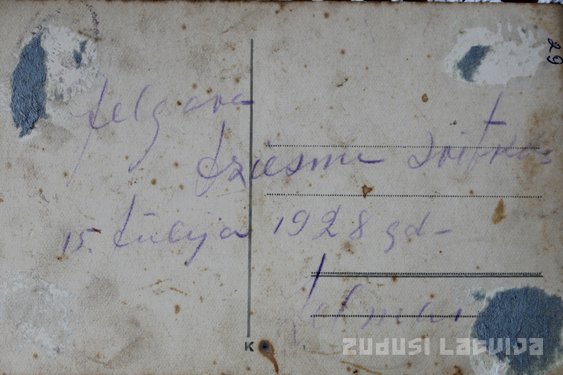 29
Jelgava
dziesmu svētkos
15. Jūlija 1928 gd-
K
ZUDUSI LATVIJA